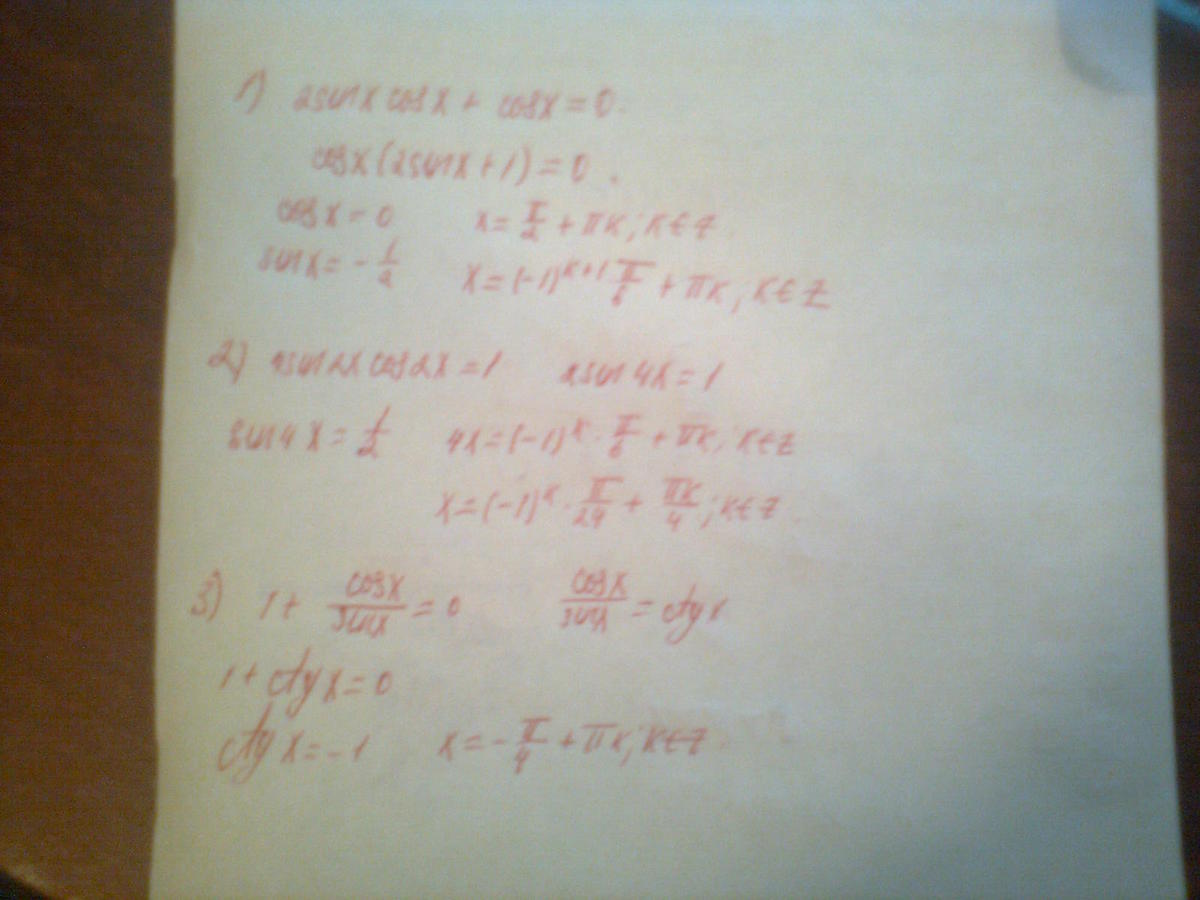 1) 2sinx cosx + cosx = 0.
cosx(2sinx+1) = 0.
cosx = 0 x = π/2 + πk; k∈Z.
sinx = -1/2 x = (-1)^(k+1) π/6 + πk; k∈Z
2) 4sin2x cos2x = 1 2sin4x = 1
sin4x = 1/2 4x = (-1)^k · π/6 + πk; k∈Z
x = (-1)^k · π/24 + πk/4; k∈Z.
3) 1 + cosx/sinx = 0 cosx/sinx = ctgx
1 + ctgx = 0
ctgx = -1 x = -π/4 + πk; k∈Z.